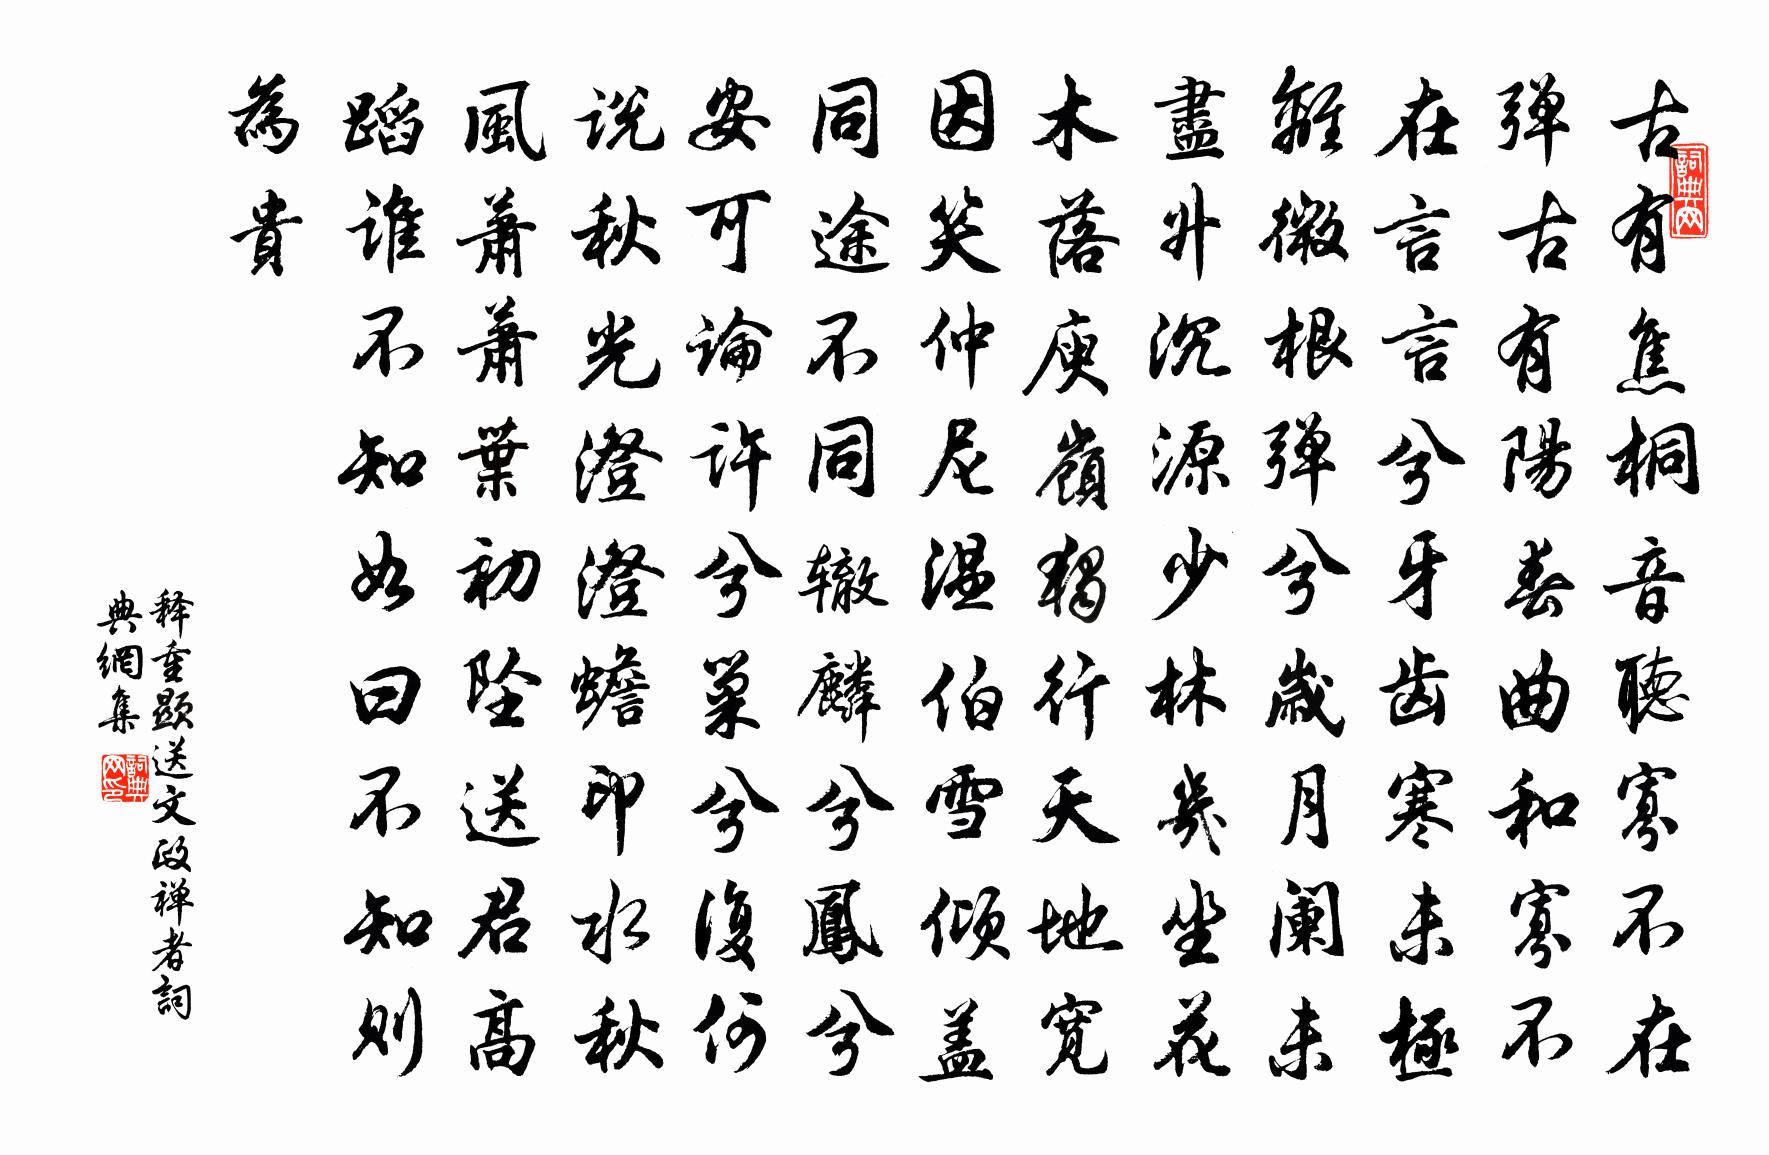 古有焦桐音聽寡不在
弹古有陽春曲和寡不
在言言兮牙齿寒未極
離微根弹兮歲月阑未
盡升沉源少林幾坐花
木落庾嶺獨行天地宽
因笑仲尼温伯雪倾盖
同途不同辙麟兮鳳兮
安可論许兮巢兮復何
说秋光澄澄蟾印水秋
風蕭蕭葉初坠送君高
蹈谁不知如曰不知则
為貴
释重顯送文政禅者詞
典網集
詞典网
詞典网印